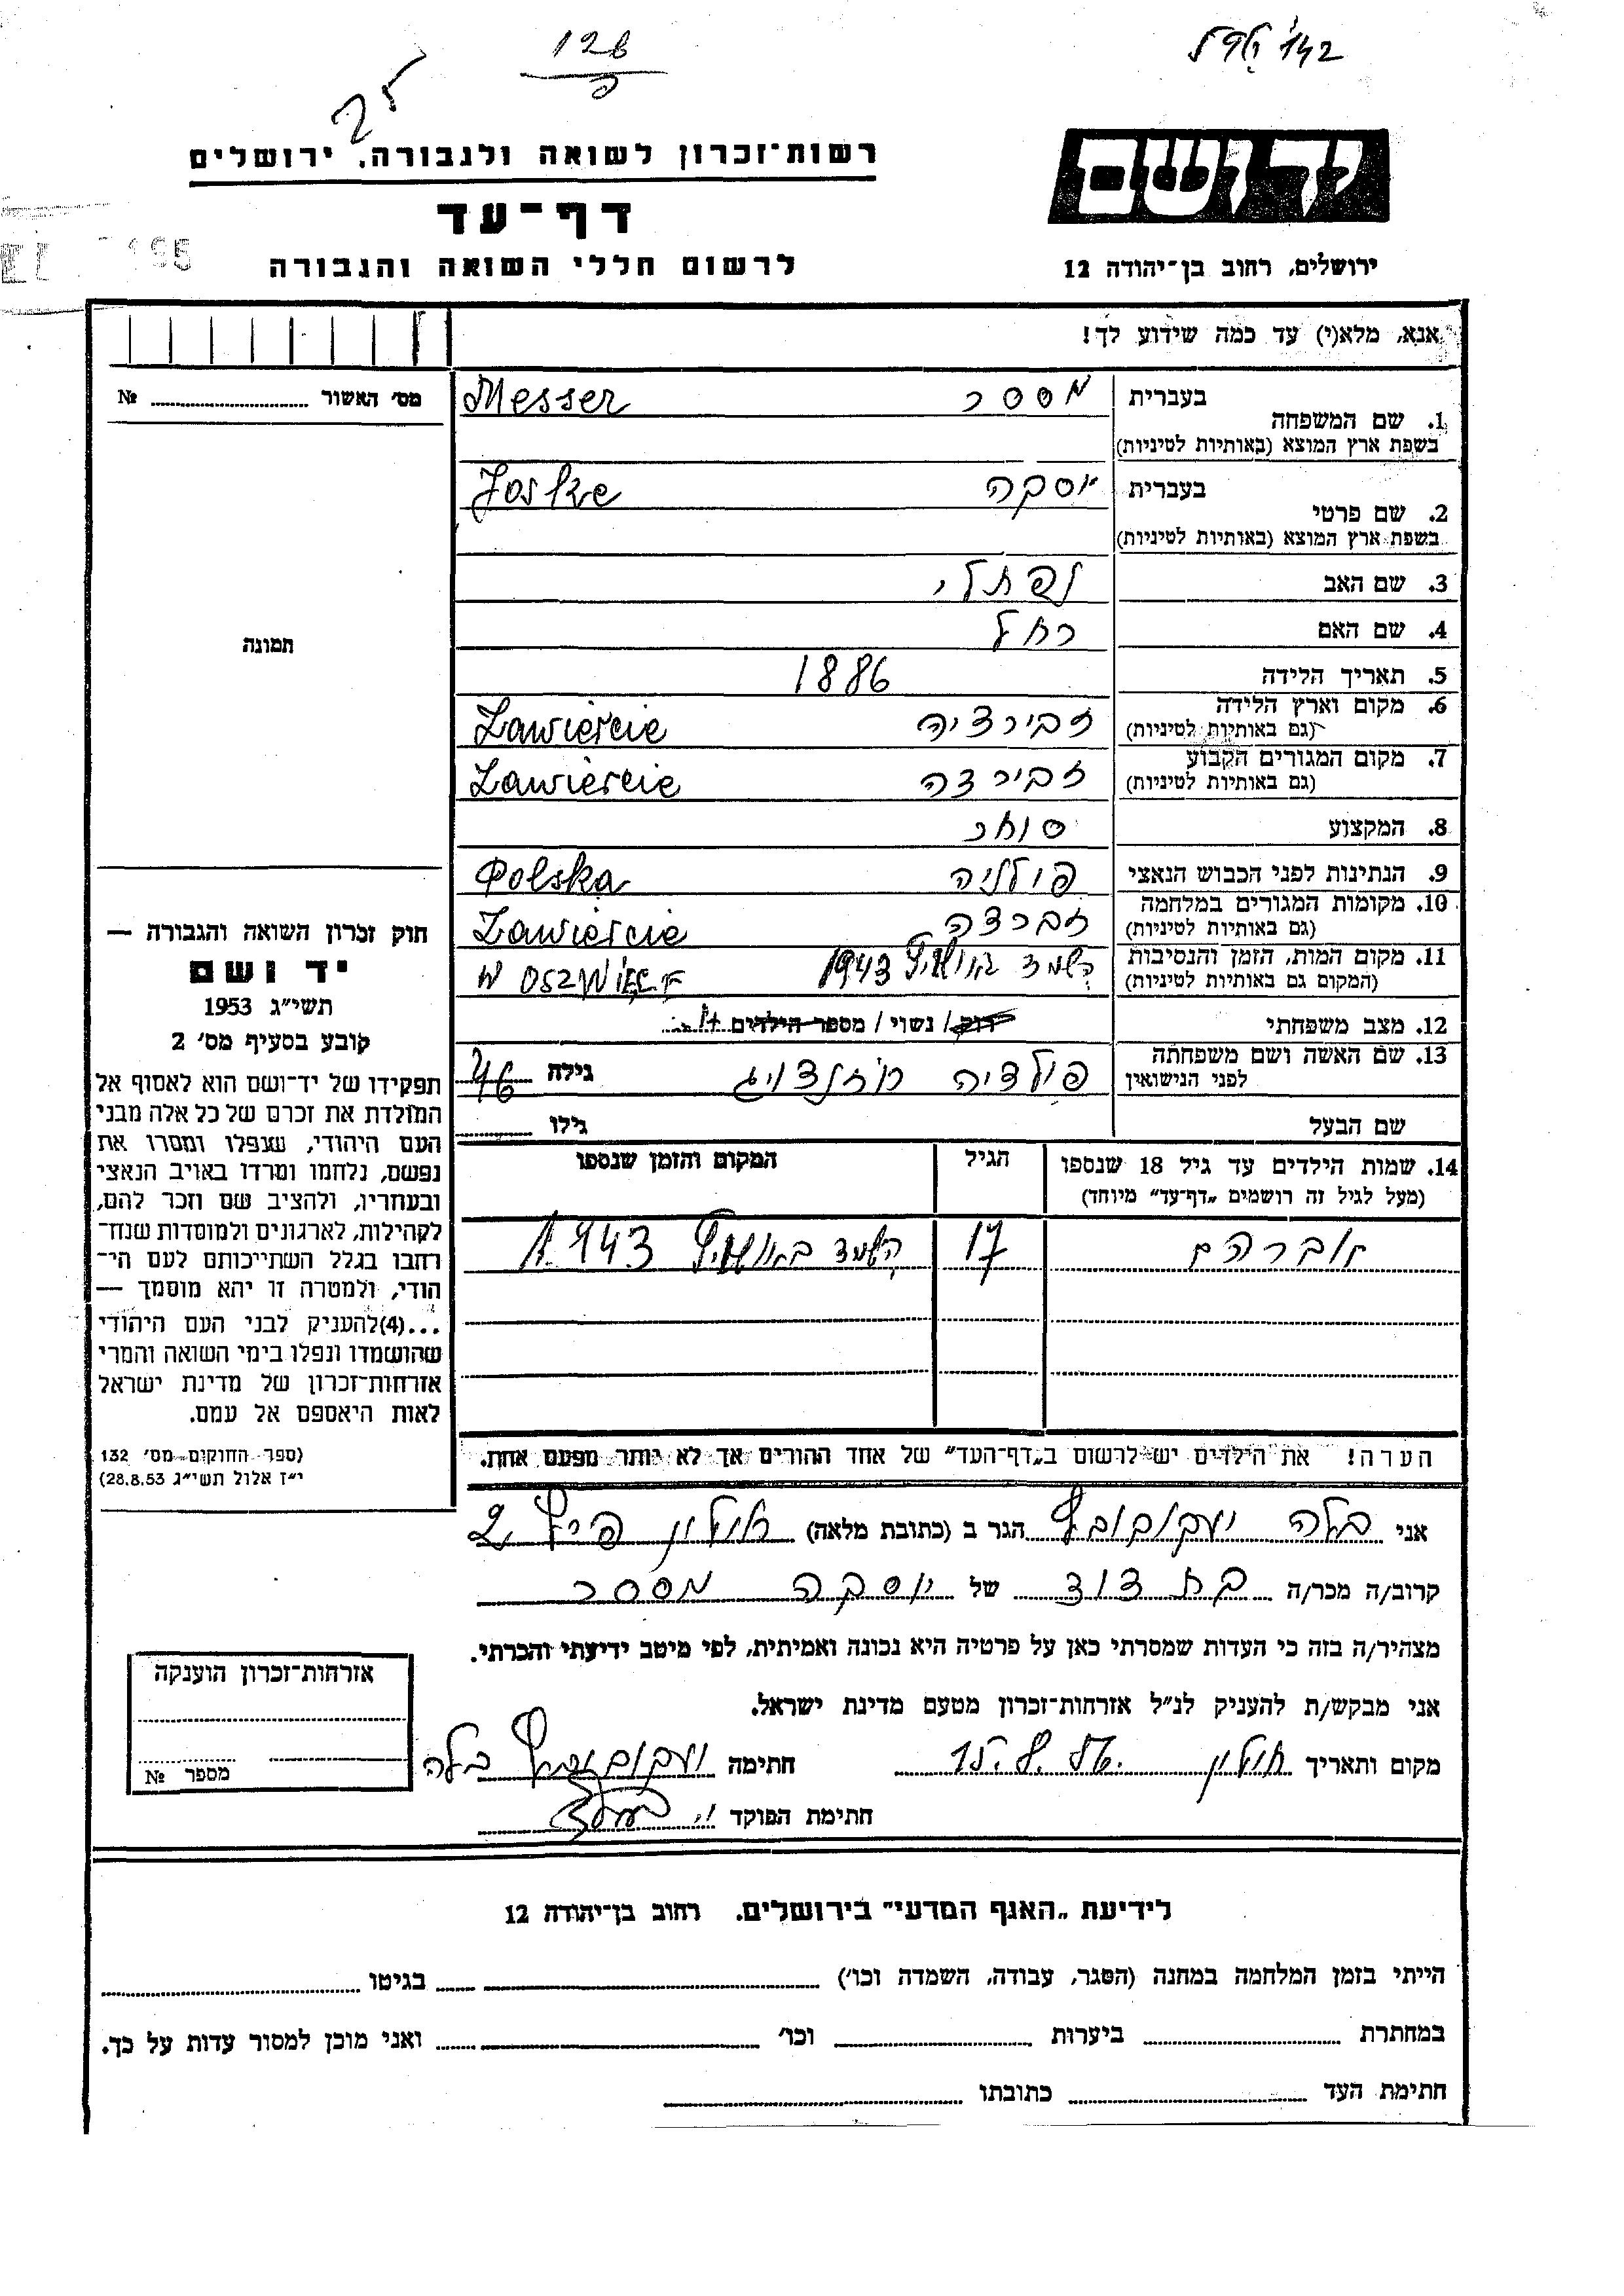 128
25
רשות־זכרון לשואה ולגבורה, ירושלים
דף־עד
לרשום חללי השואה והגבורה
יד ושם
ירושלים, רחוב בן־יהודה 12
אנא, מלא(י) עד כמה שידוע לך!
מס׳ האשור № 
תמונה
בעברית מססר Messer
1. שם המשפחה
בשפת ארץ המוצא (באותיות לטיניות)
בעברית יוסקה Joske
2. שם פרטי
בשפת ארץ המוצא (באותיות לטיניות)
3. שם האב נפתלי
4. שם האם רחל
5. תאריך הלידה 1886
6. מקום וארץ הלידה זבירציה Zawiercie
(גם באותיות לטיניות)
7. מקום המגורים הקבוע זבירצה Zawiercie
(גם באותיות לטיניות)
8. המקצוע סוחר
9. הנתינות לפני הכבוש הנאצי פולניה Polska
10. מקומות המגורים במלחמה זברצה Zawiercie
(גם באותיות לטיניות)
11. מקום המות, הזמן והנסיבות השמד באושויץ 1943 W OSZWIĘC
(המקום גם באותיות לטיניות)
12. מצב משפחתי רוק / נשוי / מספר הילדים
13. שם האשה ושם משפחתה פולציה גילה 46
לפני הנישואין
שם הבעל גילו
14. שמות הילדים עד גיל 18 שנספו הגיל המקום והזמן שנספו
(מעל לגיל זה רושמים „דף־עד״ מיוחד)
אברהם 17 השמד באושויץ 1943
הערה! את הילדים יש לרשום ב„דף־העד״ של אחד ההורים אך לא יותר מפעם אחת.
חוק זכרון השואה והגבורה —
יד ושם
תשי״ג 1953
קובע בסעיף מס׳ 2
תפקידו של יד־ושם הוא לאסוף אל
המולדת את זכרם של כל אלה מבני
העם היהודי, שנפלו ומסרו את
נפשם, נלחמו ומרדו באויב הנאצי
ובעוזריו, ולהציב שם וזכר להם,
לקהילות, לארגונים ולמוסדות שנח־
רבו בגלל השתייכותם לעם הי־
הודי, ולמטרה זו יהא מוסמך —
...(4)להעניק לבני העם היהודי
שהושמדו ונפלו בימי השואה והמרי
אזרחות־זכרון של מדינת ישראל
לאות היאספם אל עמם.
(ספר החוקים מס׳ 132
י״ז אלול תשי״ג 28.8.53)
אני בלה יעקובוביץ הגר ב (כתובת מלאה) חולון
קרוב/ה מכר/ה בת דוד של יוסקה מססר
מצהיר/ה בזה כי העדות שמסרתי כאן על פרטיה היא נכונה ואמיתית, לפי מיטב ידיעתי והכרתי.
אני מבקש/ת להעניק לנ״ל אזרחות־זכרון מטעם מדינת ישראל.
מקום ותאריך חולון חתימה יעקובוביץ בלה
חתימת הפוקד
אזרחות־זכרון הוענקה
מספר №
לידיעת „האגף המדעי״ בירושלים. רחוב בן־יהודה 12
הייתי בזמן המלחמה במחנה (הסגר, עבודה, השמדה וכו׳) בגיטו
במחתרת ביערות וכו׳ ואני מוכן למסור עדות על כך.
חתימת העד כתובתו